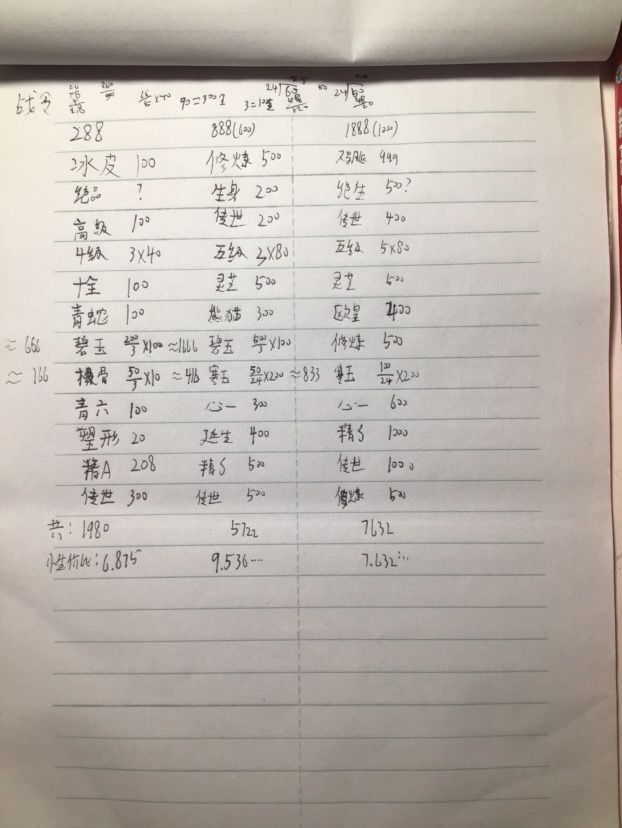 战令 90=300玉 3=10玉
288 888(600) 1888(1000)
冰皮 100 修炼 500 999
绝品 ? 生身 200 绝生 500?
高级 100 传世 200 传世 400
4级 3×40 五级 3×80 五级 5×80
十全 100 灵芝 500 灵芝 500
青蛇 100 熊猫 300 区皇 2400
≈666 碧玉 200/3×100 ≈1666 碧玉 50/3×100 修炼 500
≈166 根骨 50/3×10 ≈416 寒玉 50/24×200 ≈833 寒玉 100/24×200
青六 100 心一 300 心一 600
塑形 20 延生 400 精S 1000
精A 208 精S 500 传世 1000
传世 300 传世 500 修炼 500
共: 1980 5722 7632
性价比: 6.875 9.536… 7.632…